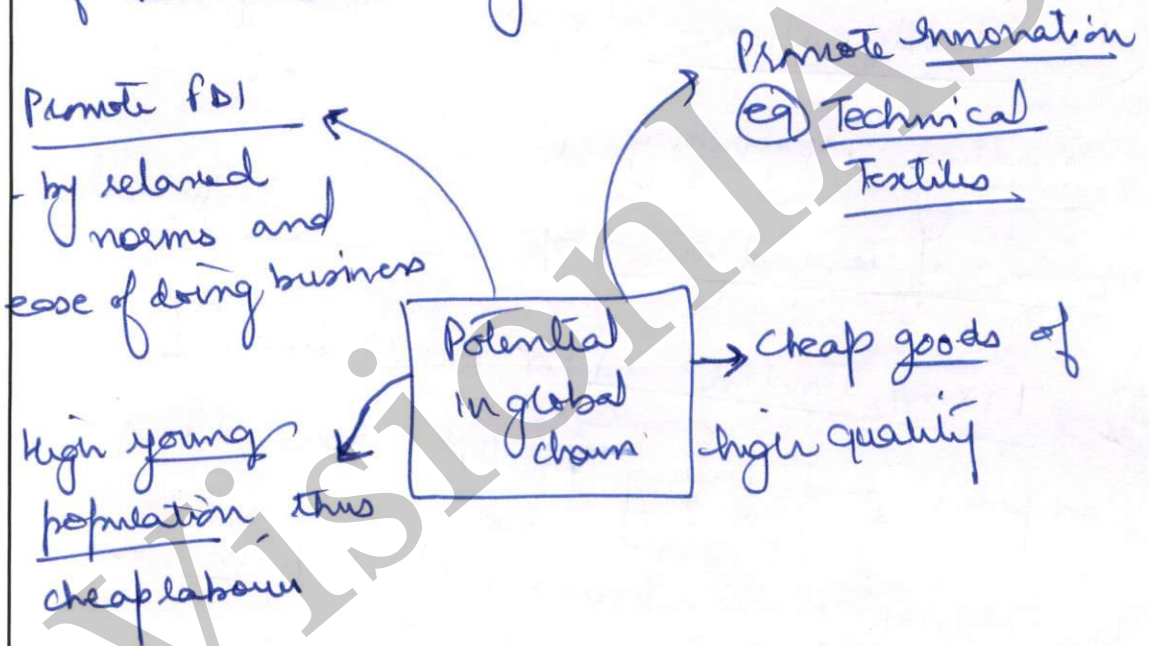 Promote FDI
- by relaxed
norms and
ease of doing business
Promote Innovation
eg Technical
Textiles
Potential
in global
chain
→ Cheap goods of
high quality
High young
population, thus
cheap labour
VisionIAS